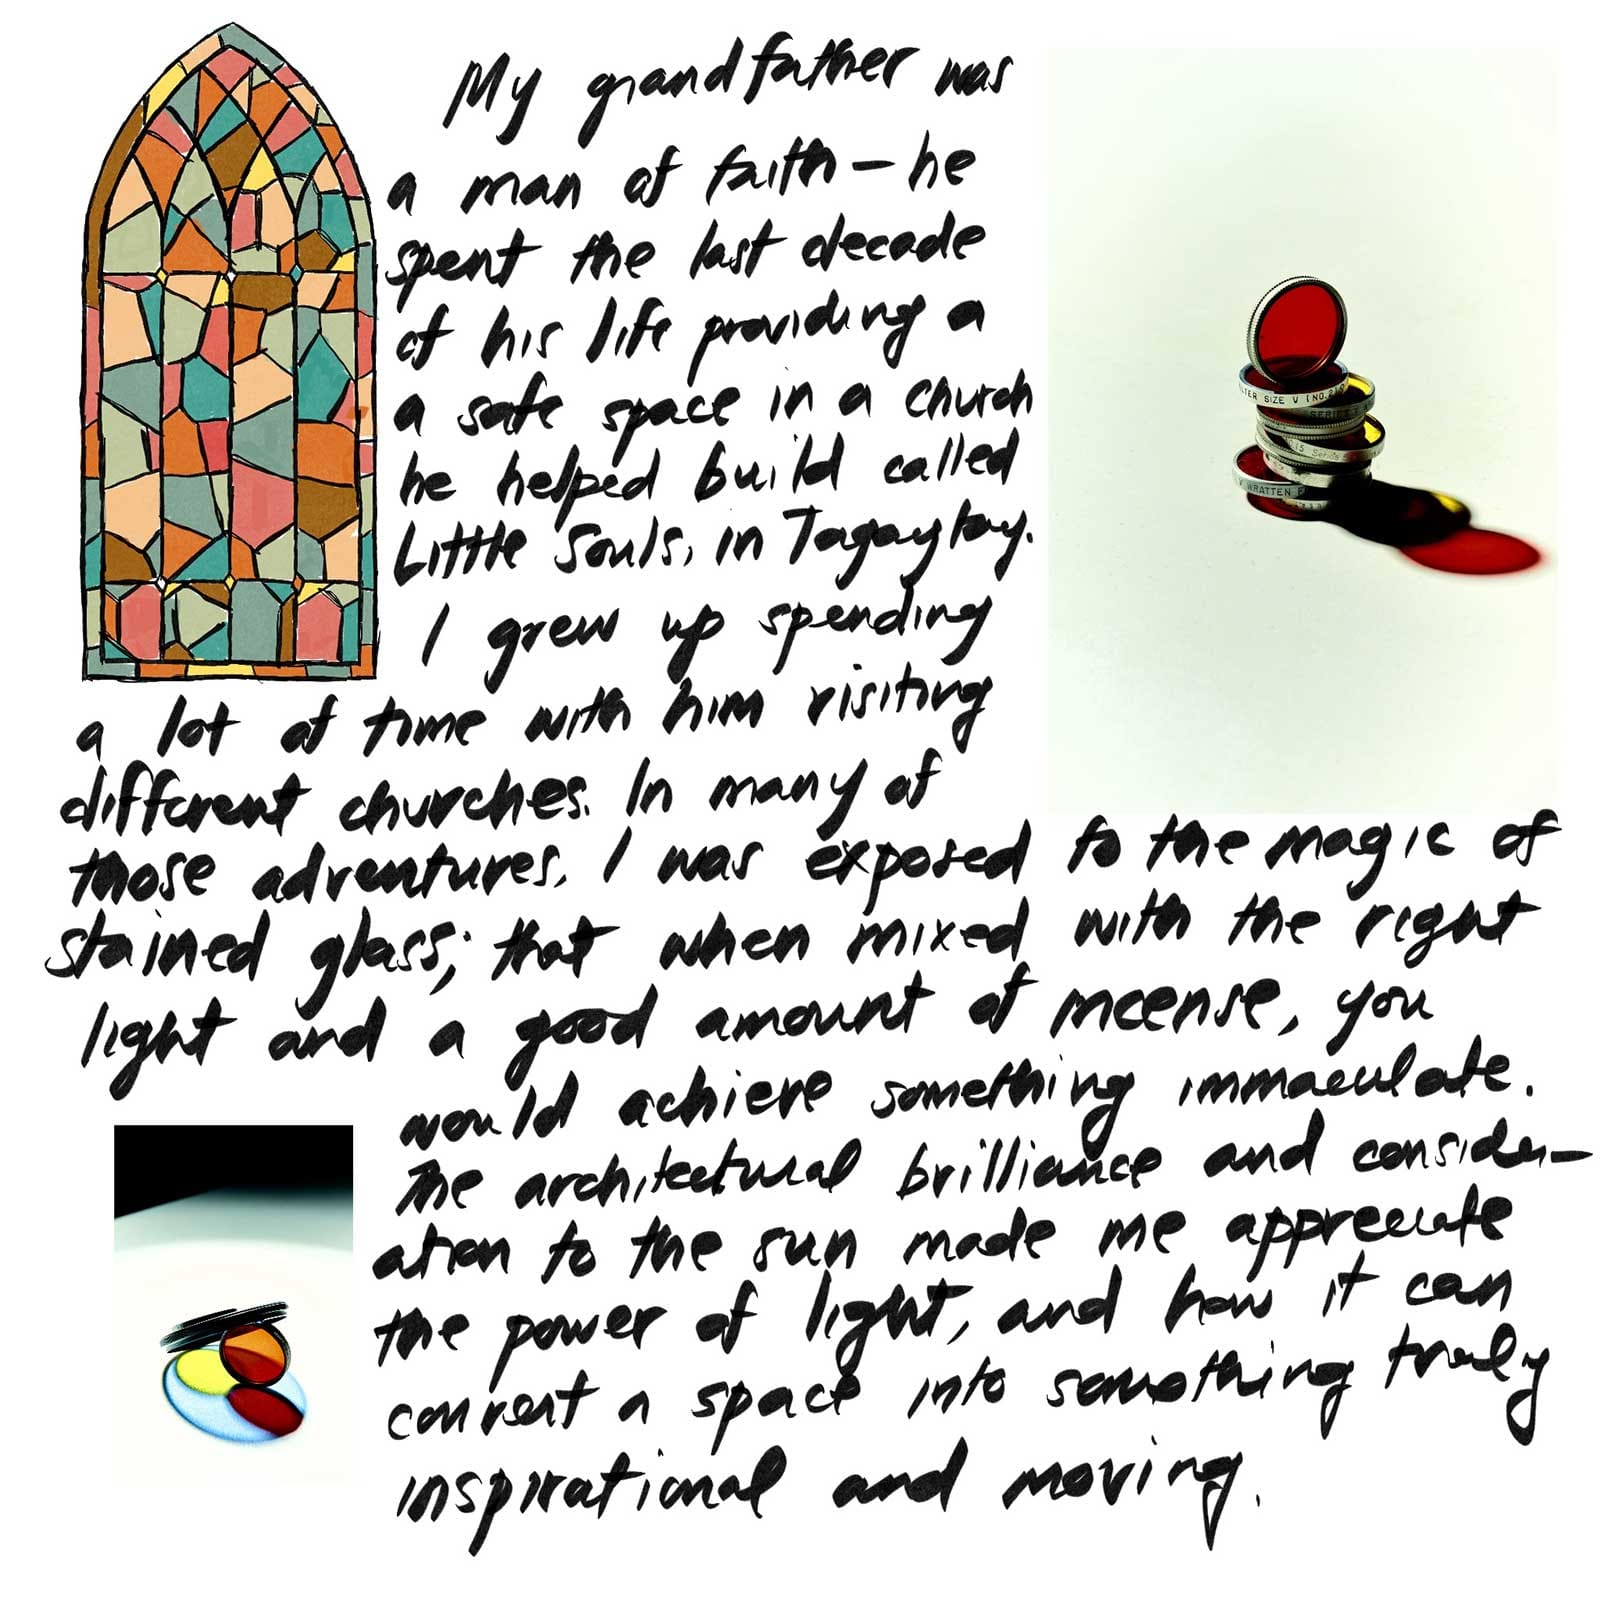 My grandfather was
a man of faith — he
spent the last decade
of his life providing a
a safe space in a church
he helped build called
Little Souls, in Tagaytay.
I grew up spending
a lot of time with him visiting
different churches. In many of
those adventures, I was exposed to the magic of
stained glass; that when mixed with the right
light and a good amount of incense, you
would achieve something immaculate.
The architectural brilliance and consider-
ation to the sun made me appreciate
the power of light, and how it can
convert a space into something truly
inspirational and moving.
FILTER SIZE V (NO.
SERIES
15 Series
WRATTEN F